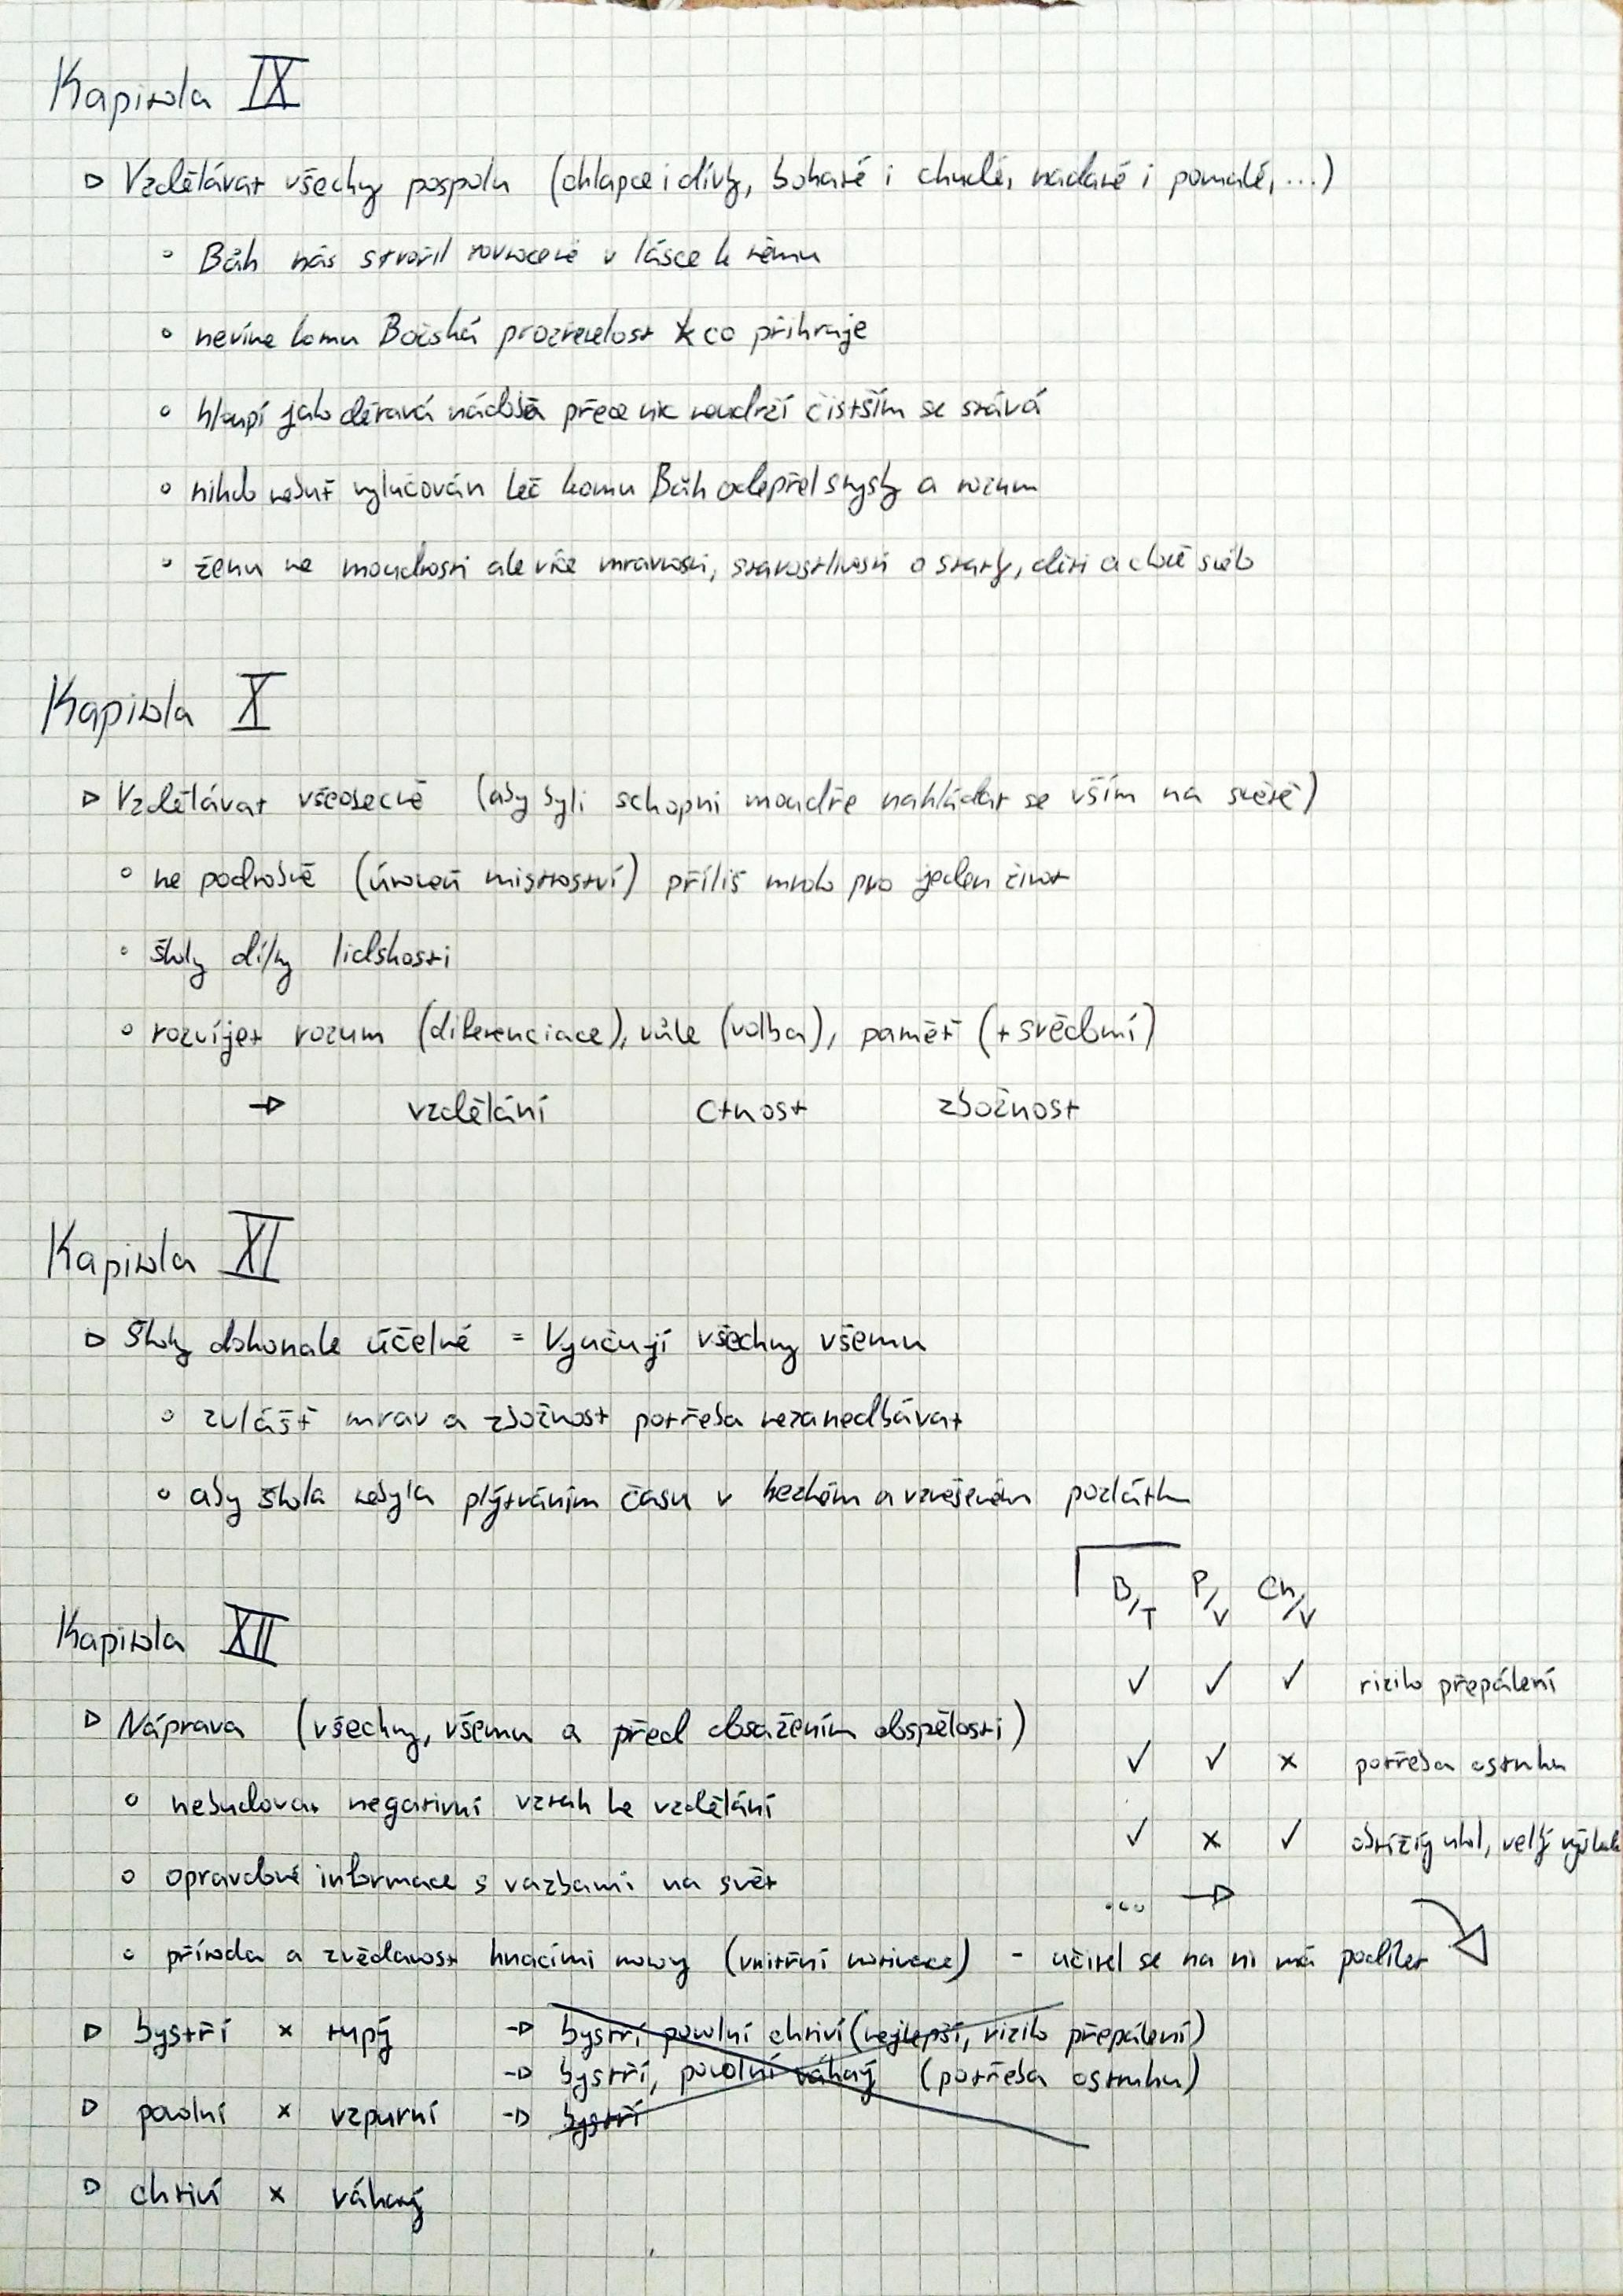 Kapitola IX
▷ Vzdělávat všechny pospolu (chlapce i dívky, bohaté i chudé, nadané i pomalé, ...)
∘ Bůh nás stvořil rovnocené v lásce k němu
∘ nevíme komu Božská prozřetelost co přihraje
∘ hloupí jako děravá nádoba přece nic neudrží čistším se stává
∘ nikdo nebuď vylučován leč komu Bůh odepřel smysly a rozum
∘ ženu ne moudrosti ale více mravnosti, starostlivosti o statky, děti a choť
Kapitola X
▷ Vzdělávat všeobecně (aby byli schopni moudře nakládat se vším na světě)
∘ ne podrobně (úroveň mistroství) příliš mnoho pro jeden život
∘ školy dílny lidskosti
∘ rozvíjet rozum (diferenciace), vůle (volba), paměť (+ svědomí)
→ vzdělání ctnost zbožnost
Kapitola XI
▷ Školy dokonale účelné = Vyučují všechny všemu
∘ zvlášť mrav a zbožnost potřeba nezanedbávat
∘ aby škola nebyla plýtváním času v hezkém a vznešeném pozlátku
B/T P/V Ch/V
Kapitola XII
✓ ✓ ✓ riziko přepálení
▷ Náprava (všechny, všemu a před dosažením dospělosti)
✓ ✓ × potřeba ostruhu
∘ nebudovat negativní vztah ke vzdělání
✓ × ✓ obtížný úkol, velký
∘ opravdové informace s vazbami na svět
... →
∘ příroda a zvědavost hnacími motory (vnitřní motivace) - učitel se na ni má podílet
▷ bystří × tupý → bystří povolní chtiví (nejlepší, riziko přepálení)
→ bystří, povolní váhavý (potřeba ostruhu)
▷ povolní × vzpurní → bystří
▷ chtiví × váhavý